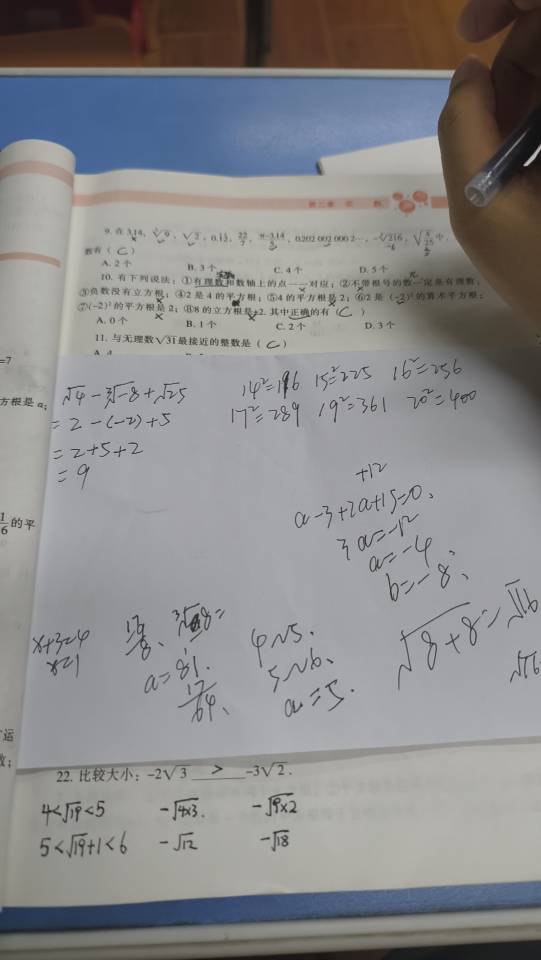 第二章 实 数
9. 在 3.14, √2, 22/7, π-3.14, 0.202 002 000 2…, -∛216 中,
数有 ( C )
A. 2 个 B. 3 个 C. 4 个 D. 5 个
10. 有下列说法: ①有理数和数轴上的点一一对应; ②不带根号的数一定是有理数;
③负数没有立方根; ④2 是 4 的平方根; ⑤4 的平方根是 2; ⑥2 是 (-2)² 的算术平方根;
⑦(-2)² 的平方根是 2; ⑧8 的立方根是±2. 其中正确的有 ( C )
A. 0 个 B. 1 个 C. 2 个 D. 3 个
11. 与无理数√31最接近的整数是 ( C )
=7
方根是 a;
1/6 的平
√4 - ∛-8 + √25
= 2 - (-2) + 5
= 2 + 5 + 2
= 9
14² = 196 15² = 225 16² = 256
17² = 289 19² = 361 20² = 400
+12
a - 3 + 2a + 15 = 0
3a = -12
a = -4
b = -8
x + 3 = 4
x = 1
a = 81
17/64
4~5.
5~6.
a = 5.
√8+8 = √16
√16
运
数;
22. 比较大小: -2√3 > -3√2.
4 < √19 < 5 -√4×3. -√9×2
5 < √19 + 1 < 6 -√12 -√18